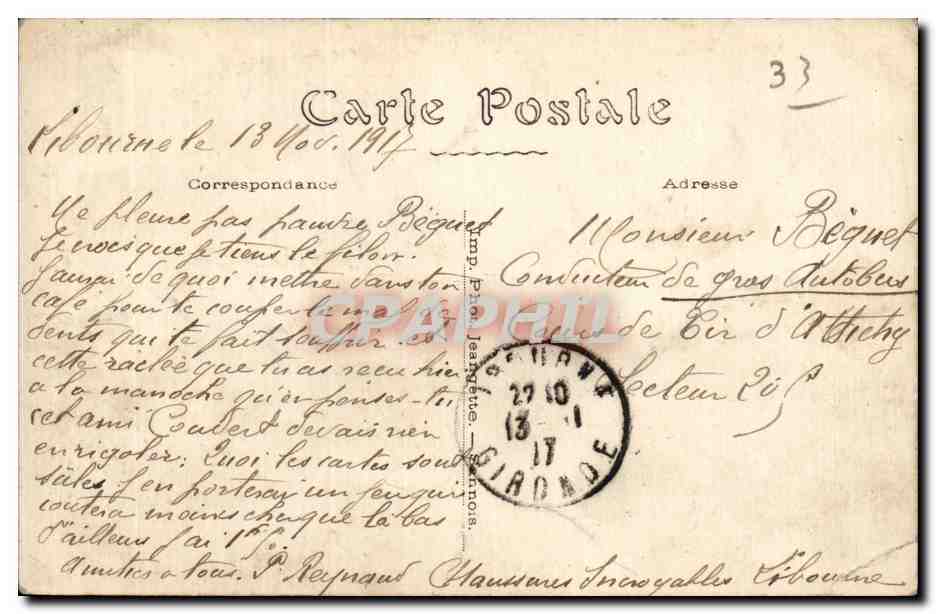 33
Carte Postale
Libourne le 13 Nov. 1917
Correspondance
Ne pleure pas pauvre Béguet
Je vois que je tiens le filon.
J'aurai de quoi mettre dans ton
café pour te couper le mal de
dents qui te fait souffrir et
cette raclée que tu as recu hier
a la manoche qu'en penses-tu
cet ami Couvert devais rien
en rigoler: Quoi les cartes sont
sales j'en porterai un jeu qui
coutera moins cher que la bas
d'ailleurs j'ai
Amities a tous. P. Reynaud Chaussures Incroyables Libourne
Imp. Phot. Jeangette. - Sannois.
Adresse
Monsieur Béguet
Conducteur de gros Autobus
Cours de Tir d'Attichy
Secteur
LIBOURNE
22 10
13 - 11
17
GIRONDE
CPAPHIL